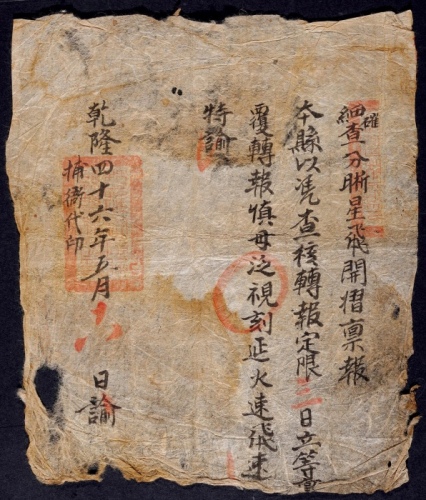 確
細查分晰星飛開摺稟報
本縣以凭查核轉報定限三日立等
覆轉報慎毋泛視刻延火速飛速
特諭
乾隆四十六年五月十六日諭
捕衙代印